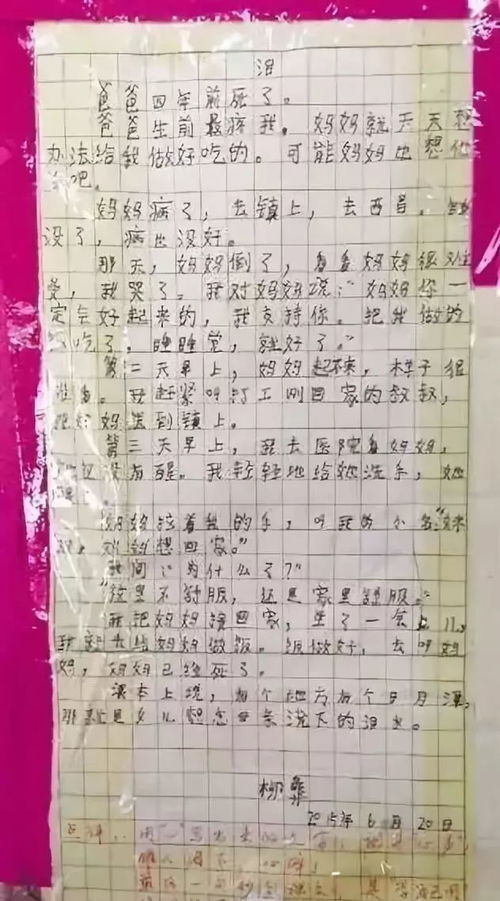 泪
爸爸四年前死了。
爸爸生前最疼我,妈妈就天天想
办法给我做好吃的。可能妈妈也想他
吧。
妈妈病了,去镇上,去西昌。钱
没了,病也没好。
那天,妈妈倒了,看看妈妈很难
受,我哭了。我对妈妈说:“妈妈你一
定会好起来的,我支持你。把我做的
饭吃了,睡睡觉,就好了。”
第二天早上,妈妈起不来,样子很
难看。我赶紧叫打工刚回家的叔叔,
把妈妈送到镇上。
第三天早上,我去医院看妈妈,
没有醒。我轻轻地给她洗手,她
妈妈拉着我的手,叫我的小名:“妹
想回家。”
我问:“为什么了?”
“这里不舒服,还是家里舒服。”
我把妈妈接回家,坐了一会儿,
我就去给妈妈做饭。饭做好,去叫妈
妈,妈妈已经死了。
课本上说,有个地方有个日月潭,
那就是女儿想念母亲流下的泪水。
柳彝
2015年6月20日
点评: